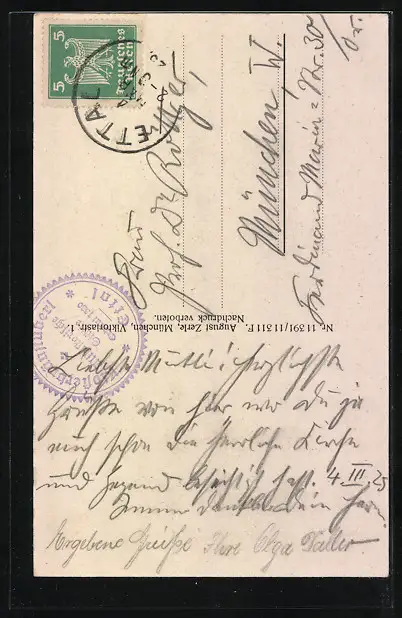 5 5
Deutsches Reich
ETTAL
Frau
Prof. Dr. Röttger,
München, W.
Ferdinand Maria = Str. 30/
Nr. 11391/11311 F. August Zerle, München, Viktoriastr. 1.
Nachdruck verboten.
Ettal
Liebste Mutti! herzlichste
Grüsse von hier wo du ja
auch schon die herrliche Kirche
und Gegend besichtigt hast. 4. III. 25
Immer Dein
Ergebene Grüße Ihre Olga